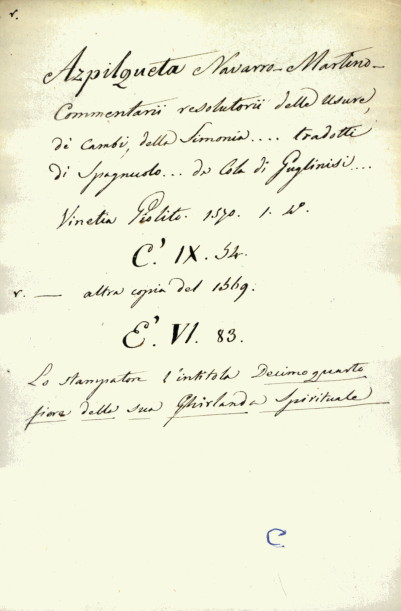 r.
Azpilqueta Navarro - Martino -
Commentarii resolutorii delle Usure,
de' cambi, della Simonia .... tradotti
di Spagnuolo ... da Cola di Guglinisi ....
Vinetia Giolito. 1570. 1. 4°.
C.' IX. 54.
r. — altra copia del 1569.
E.' VI. 83.
Lo stampatore l'intitola Decimoquarto
fiore della sua Ghirlanda Spirituale
C